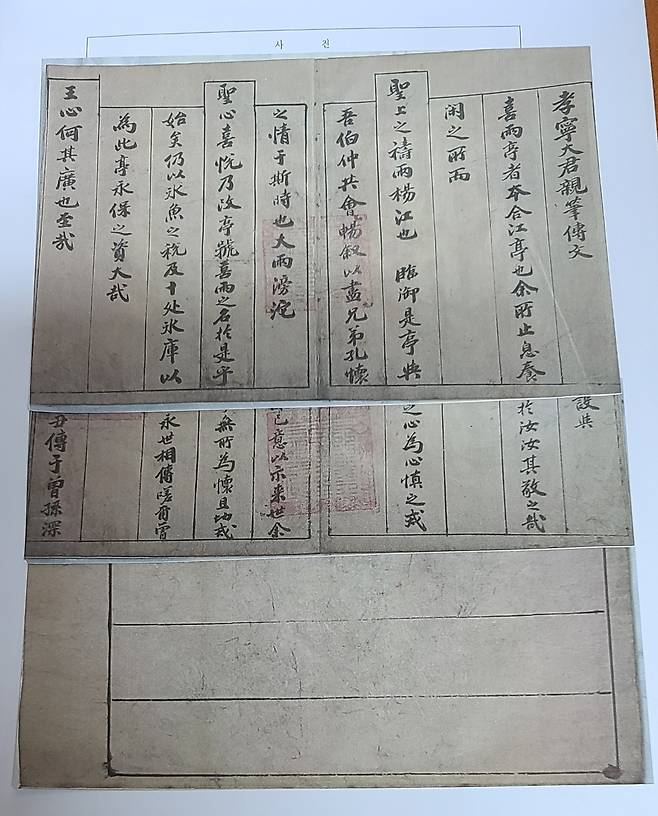 사 진
孝寧大君親筆傳文
喜雨亭者本合江亭也余所止息養
閑之所而
聖上之禱雨楊江也 臨御是亭與
吾伯仲共會暢叙以盡兄弟孔懷
之情于斯時也大雨滂沱
聖心喜悅乃改亭號喜雨之名於是乎
始矣仍以氷魚之稅及十处氷庫以
為此亭永保之資大哉
王心何其廣也至哉
設與
於汝汝其敬之哉
之心為心慎之戒
已意以示来世余
無所為懷且地戎
永世相傳嗟甫曾
丑傳于曾孫深